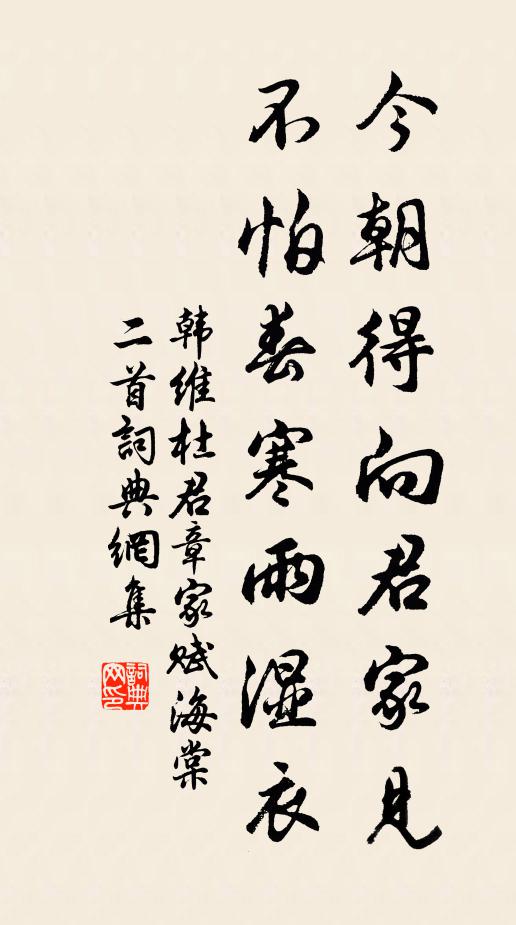 今朝得向君家見
不怕春寒雨濕衣
韩維杜君章家赋海棠
二首詞典網集
詞典网印